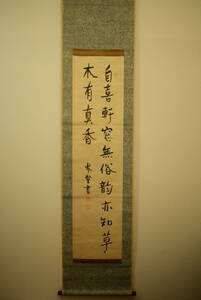 自喜軒窓無俗韵亦知草
木有真香